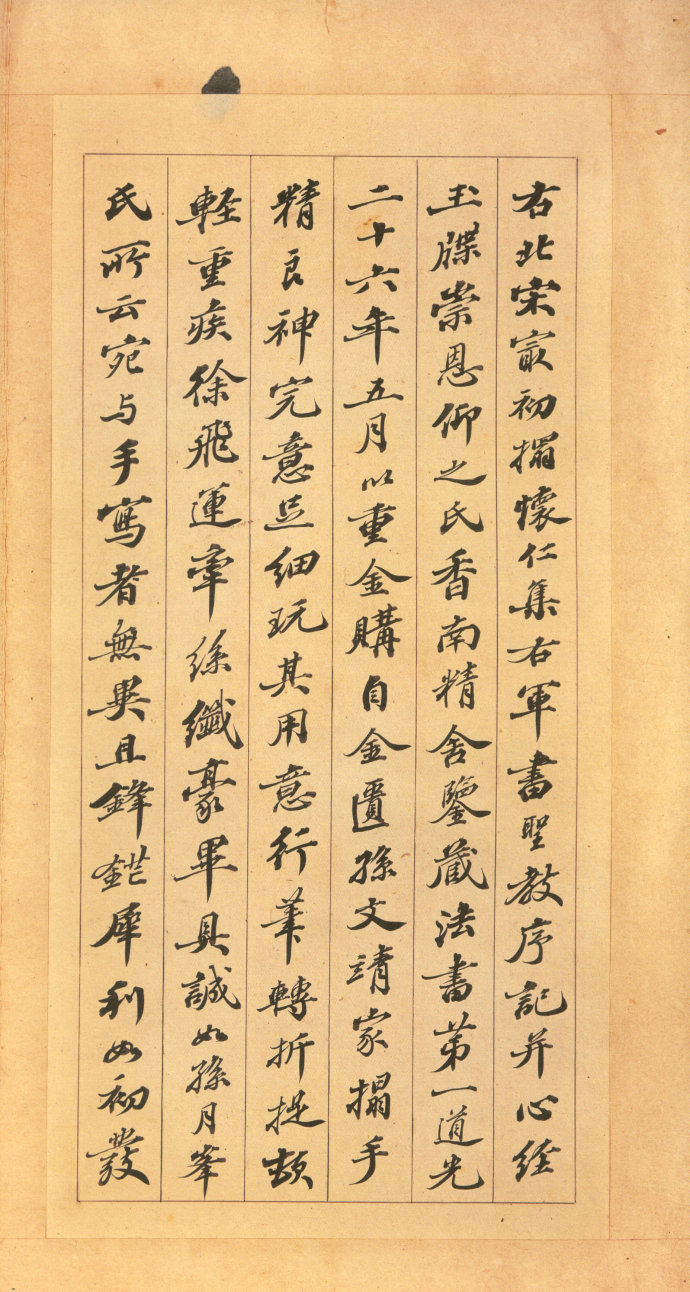 右北宋冣初搨懷仁集右軍書聖教序記并心經
玉牒崇恩仰之氏香南精舍鑒藏法書第一道光
二十六年五月以重金購自金匱孫文靖家搨手
精良神完意足細玩其用意行筆轉折提頓
輕重疾徐飛運牽絲纖豪畢具誠如孫月峯
氏所云宛与手寫者無異且鋒鋩犀利如初發